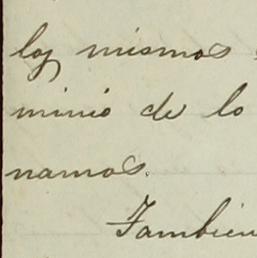 los mismos
minio de lo
namos.
Tambien